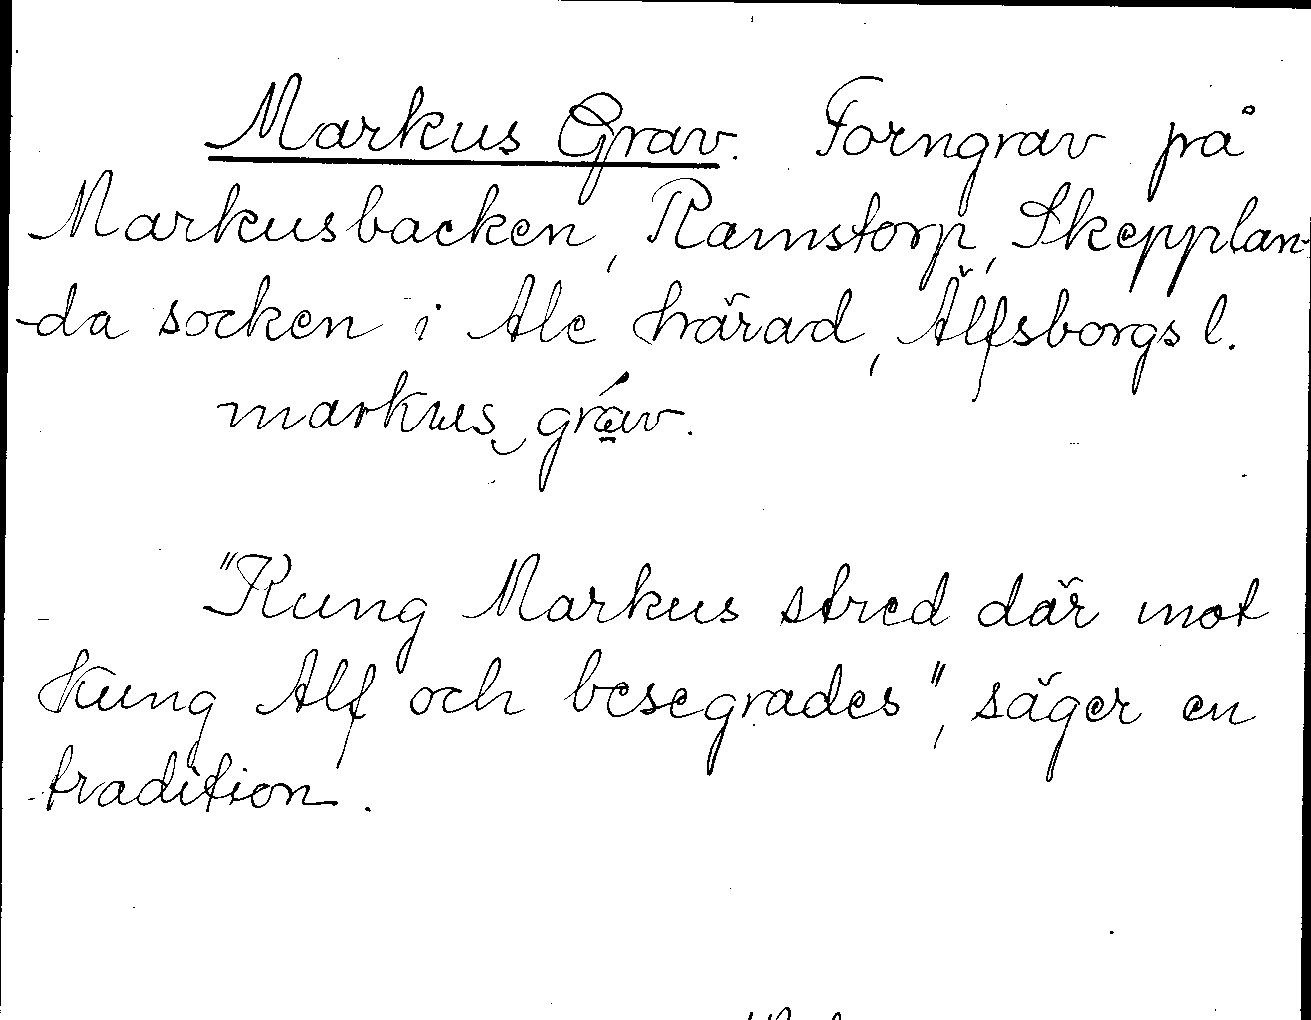 Markus Grav. Forngrav på
Markusbacken, Ramstorp, Skepplan-
da socken i Ale härad, Älfsborgs l.
markus‿gráv.
"Kung Markus stred där mot
Kung Alf och besegrades", säger en
tradition.